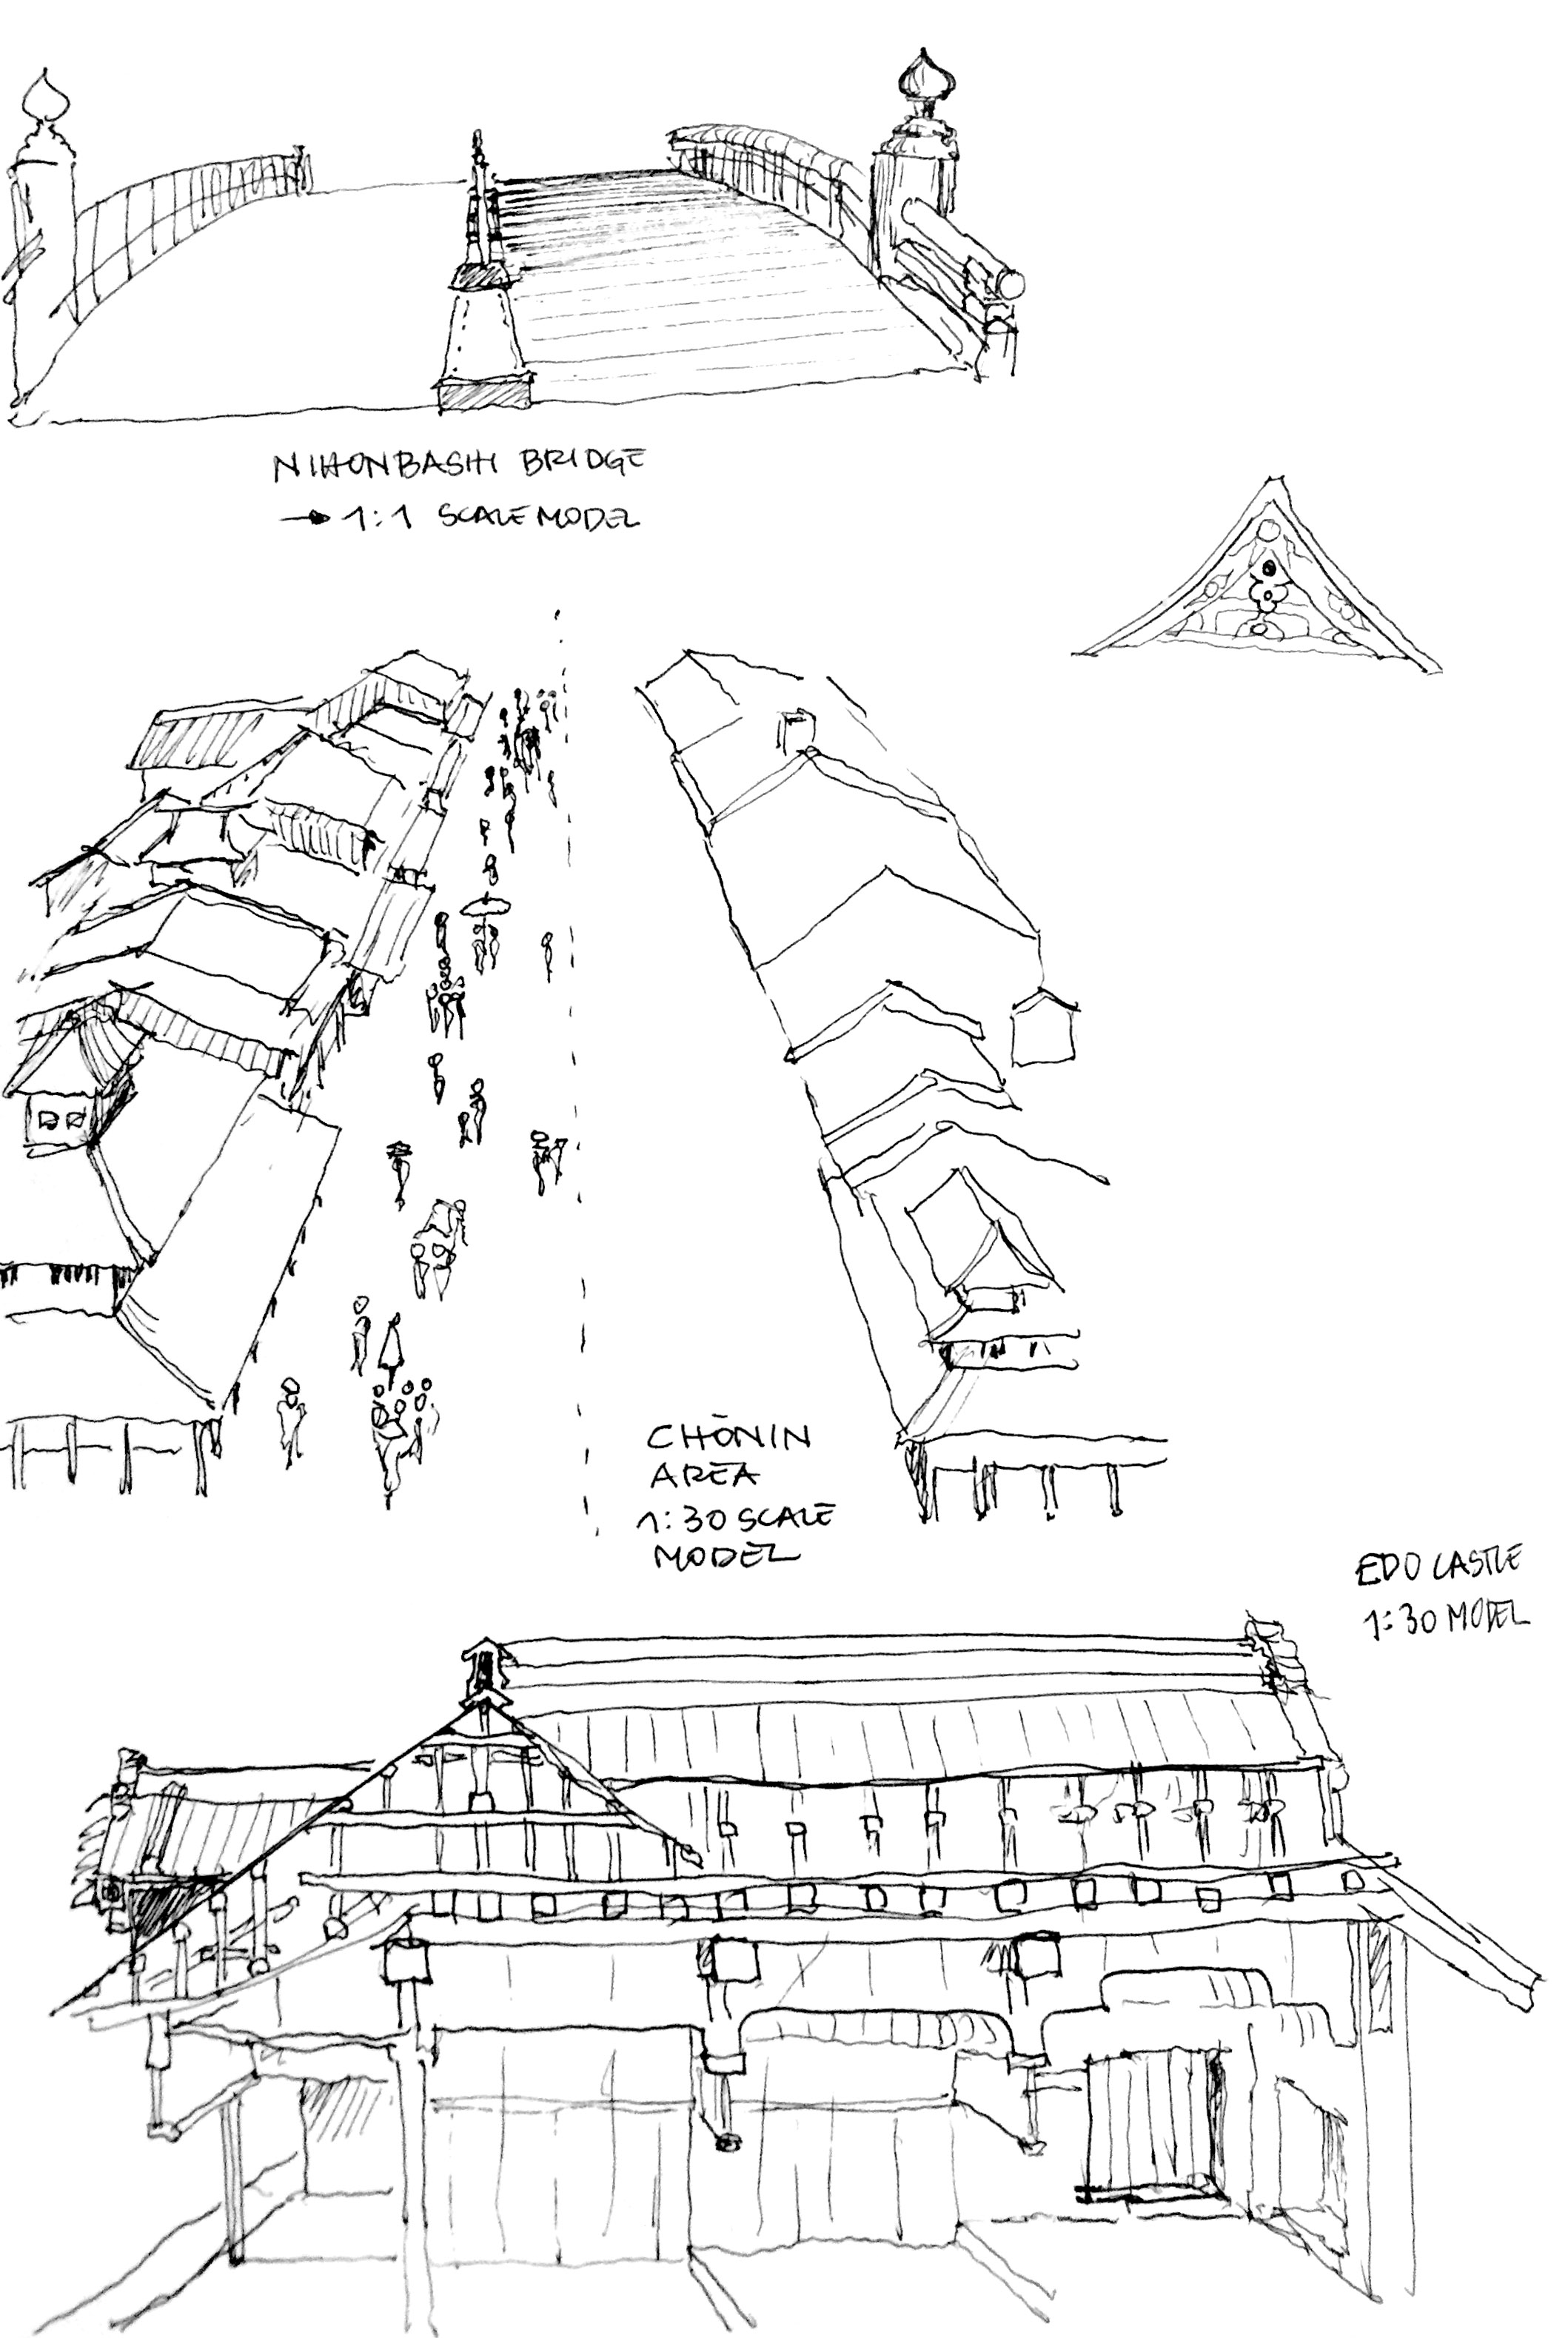 NIHONBASHI BRIDGE
→ 1:1 SCALE MODEL
CHŌNIN
AREA
1:30 SCALE
MODEL
EDO CASTLE
1:30 MODEL